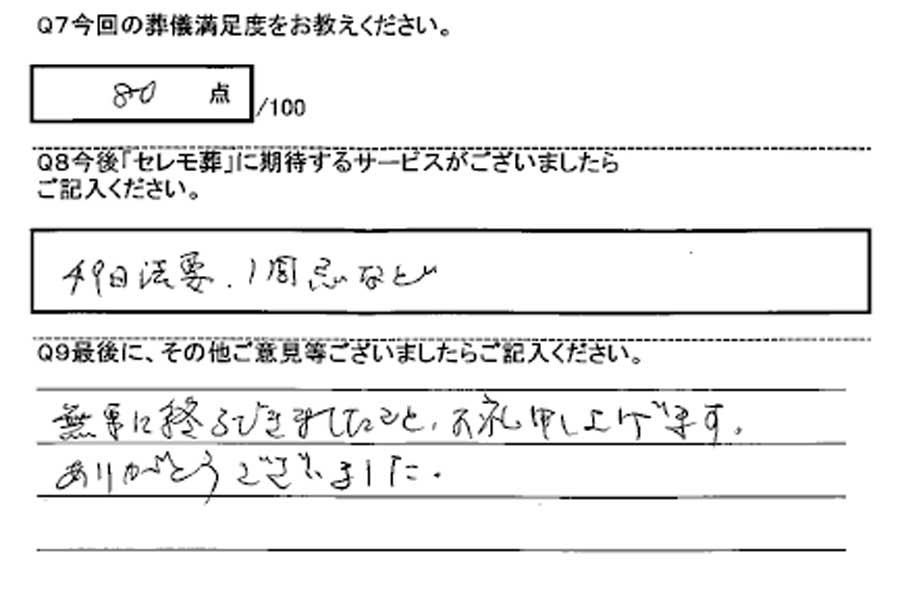 Q7今回の葬儀満足度をお教えください。
80 点 /100
Q8今後「セレモ葬」に期待するサービスがございましたら
ご記入ください。
49日法要、1周忌など
Q9最後に、その他ご意見等ございましたらご記入ください。
無事に終るできましたこと、お礼申し上げます。
ありがとうございました。